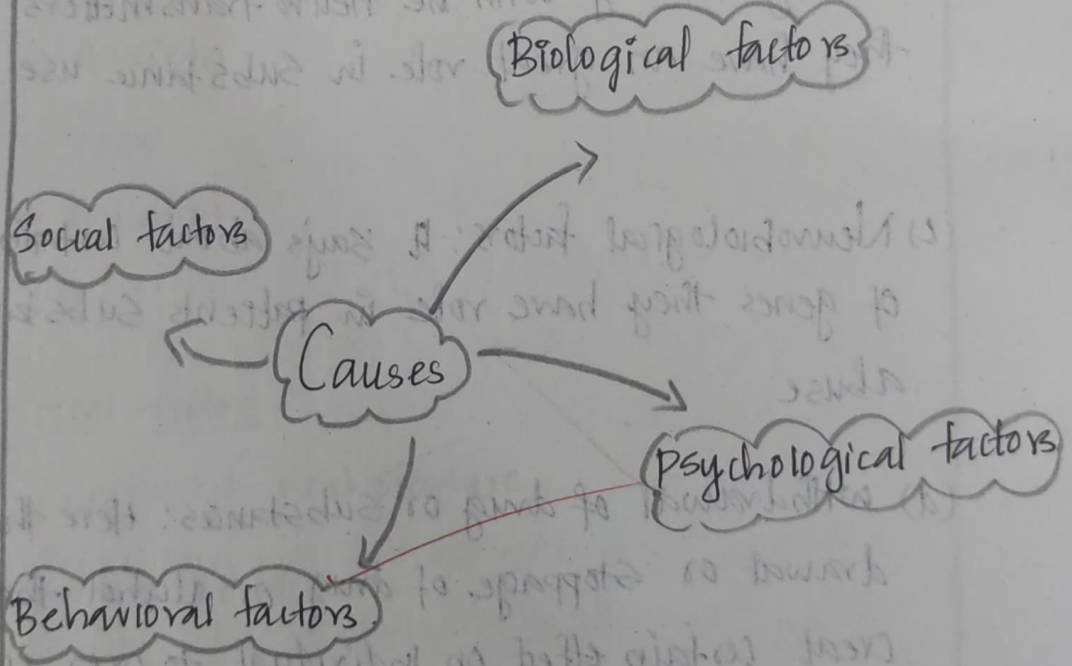 Biological factors
Social factors
Causes
Psychological factors
Behavioral factors